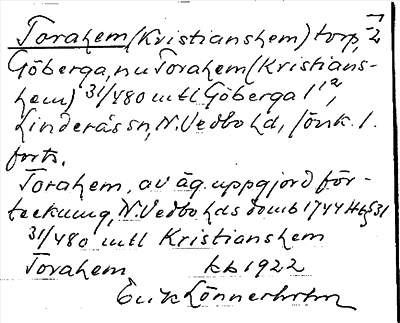 Torahem (Kristianshem) torp, 2
Göberga, nu Torahem (Kristians-
hem) 31/480 mtl Göberga 1 1a,
Linderås sn, N. Vedbo hd, Jönk. l.
forts.
Torahem, av äg. uppgjord för-
teckning, N. Vedbo hds domb 1744 Ht § 31
31/480 mtl Kristianshem
Torahem kb 1922
Erik Lönnerholm